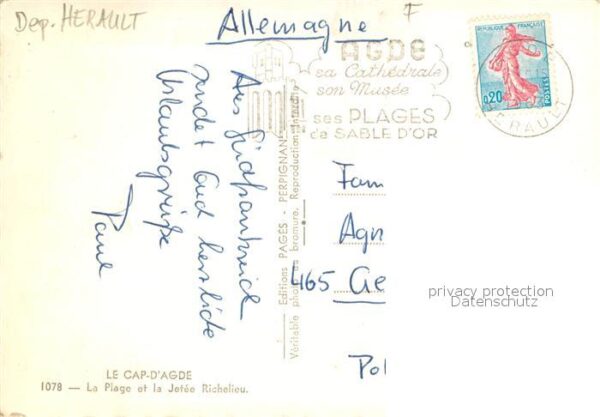 Dep. HERAULT
Allemagne
F
AGDE
sa Cathédrale
son Musée
ses PLAGES
de SABLE D'OR
HERAULT
REPUBLIQUE FRANÇAISE
0,20
POSTES
Aus Südfrankreich
sendet Euch herzliche
Urlaubsgrüße
Paul
Editions PAGÈS - PERPIGNAN
Véritable photo au bromure, Reproduction interdite
Fam
Agn
465 Ge
Pol
privacy protection
Datenschutz
LE CAP-D'AGDE
1078 — La Plage et la Jetée Richelieu.